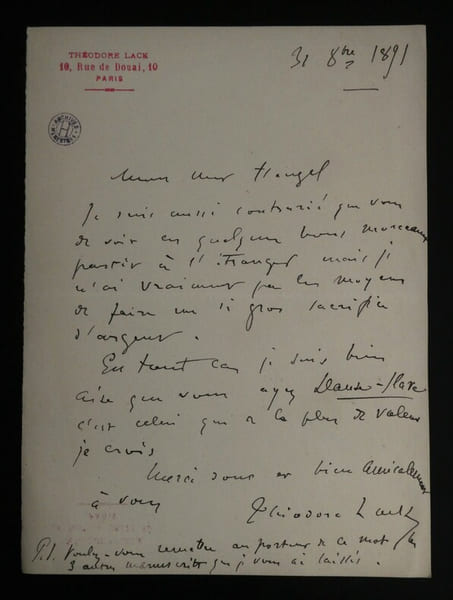 THÉODORE LACK
10, Rue de Douai, 10
PARIS
31 8bre 1891
ARCHIVES
H
HEUGEL
Mon cher Heugel
Je suis aussi contrarié que vous
de voir ces quelques bons morceaux
partir à l'Étranger mais je
n'ai vraiment pas les moyens
de faire un si gros sacrifice
d'argent.
En tout cas je suis bien
aise que vous ayez Danse-Slave
c'est celui qui a le plus de valeur
je crois
Merci donc et bien amicalement
à vous
Théodore Lack
P.S. Voulez-vous remettre au porteur de ce mot les
3 autres manuscrits que je vous ai laissés.